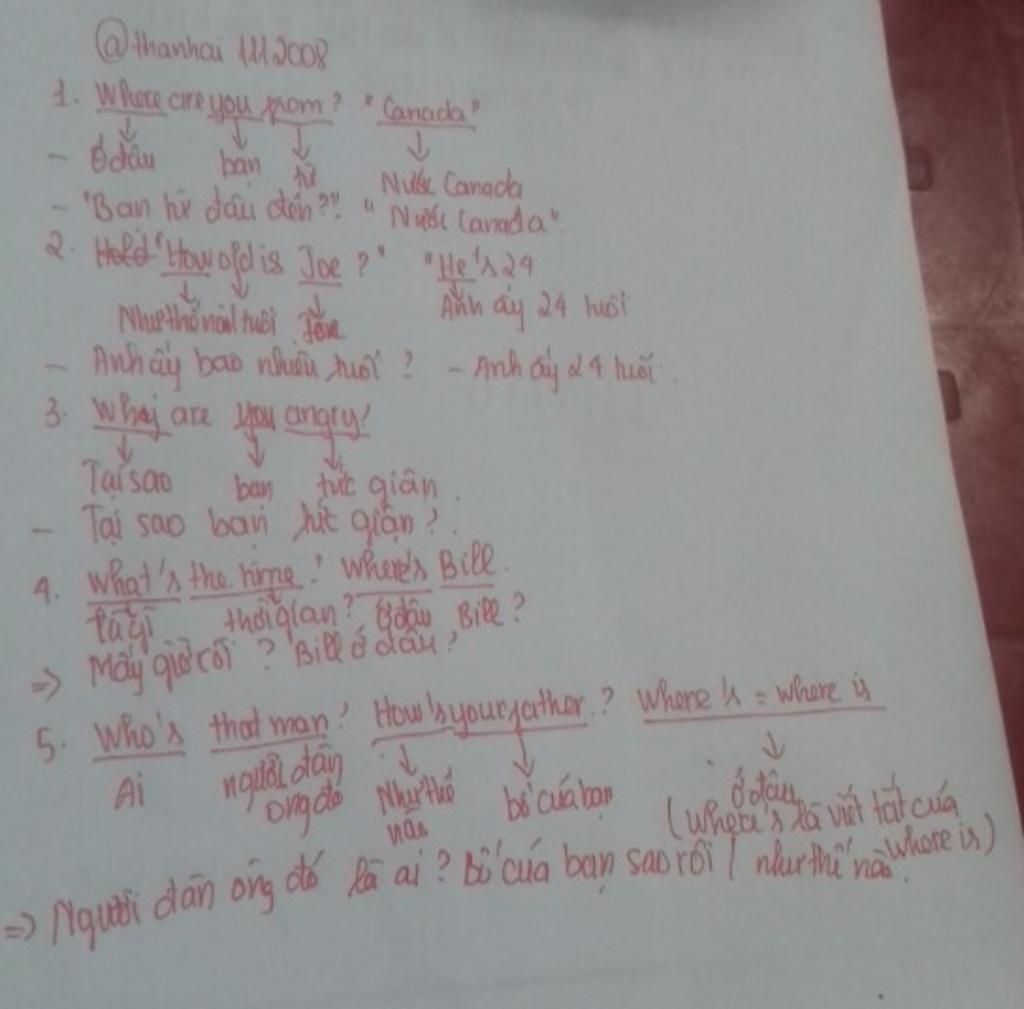 @thanhai 1112008
1. Where are you from? "Canada"
- Ở đâu bạn từ Nước Canada
- "Bạn từ đâu đến?" "Nước Canada"
2. "How old is Joe?" "He's 24
Như thế nào tuổi Tên Anh ấy 24 tuổi
- Anh ấy bao nhiêu tuổi? - Anh ấy 24 tuổi.
3. Why are you angry?
Tại sao bạn tức giận.
- Tại sao bạn tức giận?
4. What's the time? Where's Bill.
Là gì thời gian? Ở đâu Bill?
=> Mấy giờ rồi? Bill ở đâu?
5. Who's that man? How's your father? Where's = where is
Ai người đàn ông đó Như thế nào bố của bạn Ở đâu
(Where's là viết tắt của where is)
=> Người đàn ông đó là ai? Bố của bạn sao rồi / như thế nào.